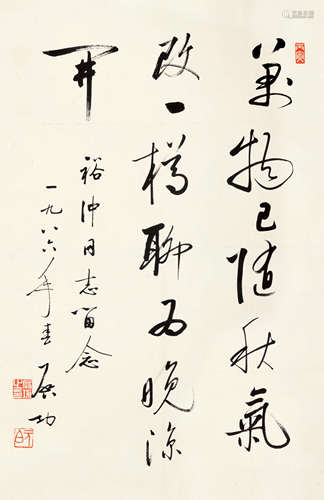 万物已随秋气
改一樽聊为晚凉
开
裕冲同志留念
一九八六年春 启功